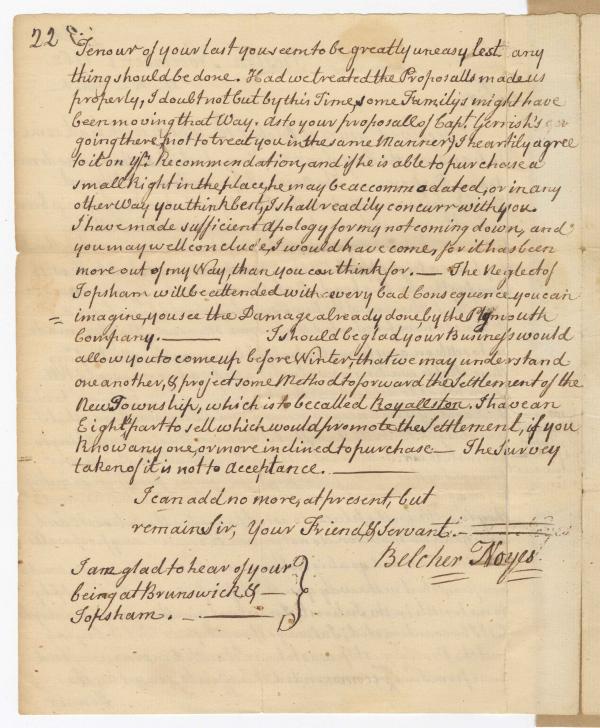 22
Tenour of your last you seem to be greatly uneasy lest any
thing should be done. Had we treated the Proposalls made us
properly, I doubt not but by this Time, some Family's might have
been moving that Way. As to your proposall of Capt. Gerrish's
going there, (not to treat you in the same Manner) I heartily agree
to it on yr. Recommendation, and if he is able to purchase a
small Right in the place, he may be accommodated, or in any
other Way you think best, I shall readily concurr with you.
I have made sufficient Apology for my not coming down, and
you may well conclude, I would have come, for it has been
more out of my Way, than you can think for. — The Neglect of
Topsham will be attended with every bad Consequence you can
imagine, you see the Damage already done, by the Plymouth
Company. — I should be glad your Business would
allow you to come up before Winter, that we may understand
one another, & project some Method to forward the Settlement of the
New Township, which is to be called Royallston. I have an
Eighth part to sell which would promote the Settlement, if you
know any one, or more inclined to purchase — The Survey
taken of it is not to Acceptance. —
I can add no more, at present, but
remain Sir, Your Friend, & Servant. —
Belcher Noyes.
I am glad to hear of your
being at Brunswick & —
Topsham. —